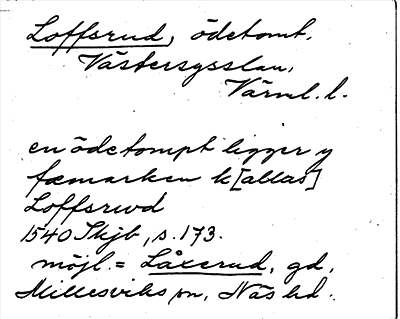 Loffsrud, ödetomt.
Västersysslan,
Värml. l.
en ödetompt ligger y
fæmarken k[allas]
Loffsrwd
1540 Skjb, s. 173.
möjl. = Låxerud, gd,
Millesviks sn, Näs hd.